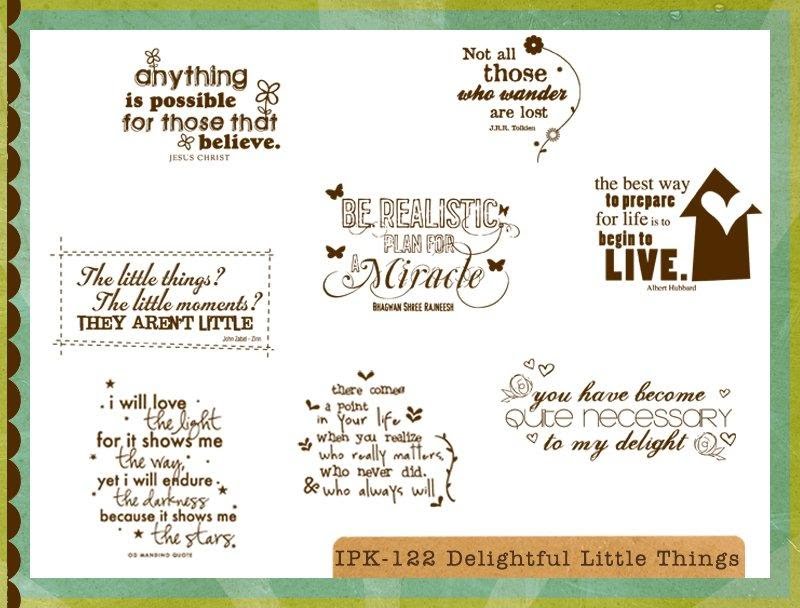 anything
is possible
for those that
believe.
JESUS CHRIST
Not all
those
who wander
are lost
J.R.R. Tolkien
the best way
to prepare
for life is to
begin to
LIVE.
Albert Hubbard
BE REALISTIC.
PLAN FOR
A Miracle
BHAGWAN SHREE RAJNEESH
The little things?
The little moments?
THEY AREN'T LITTLE
John Zabat - Zinn
i will love
the light
for it shows me
the way,
yet i will endure
the darkness
because it shows me
the stars.
OG MANDINO QUOTE
there comes
a point
in your life
when you realize
who really matters,
who never did.
& who always will
you have become
QUITE NECESSARY
to my delight
IPK-122 Delightful Little Things